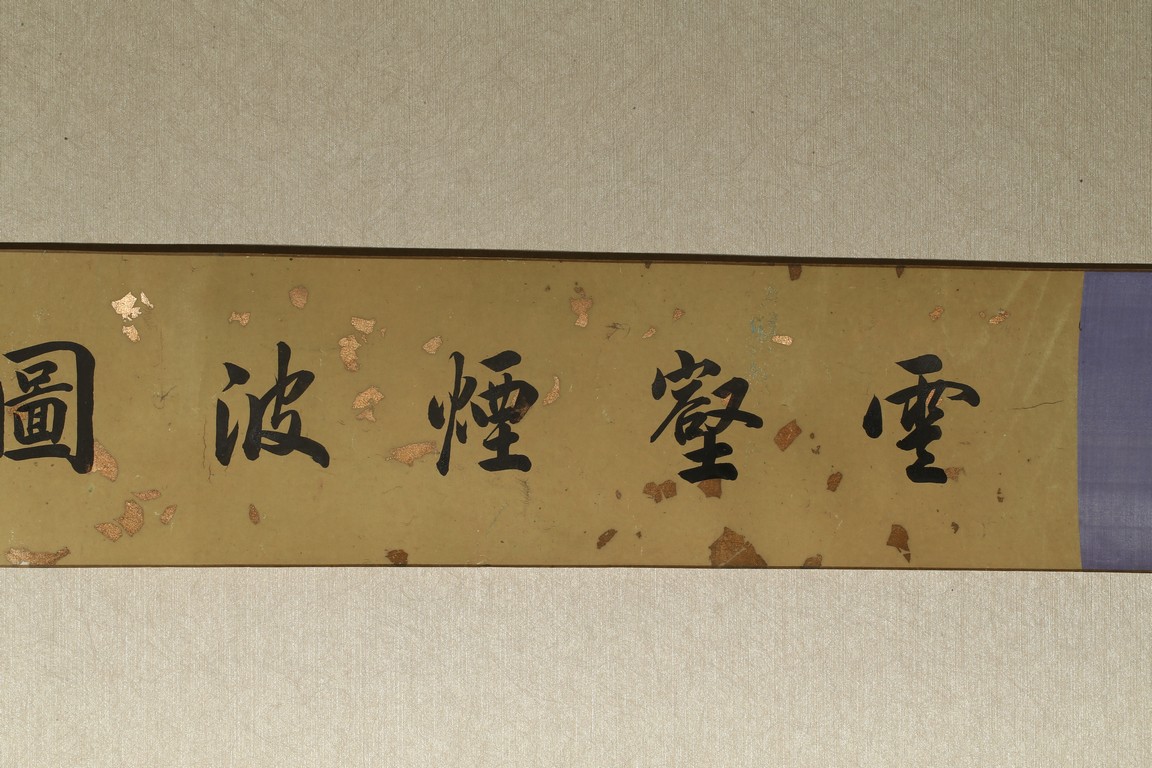 雲壑煙波圖